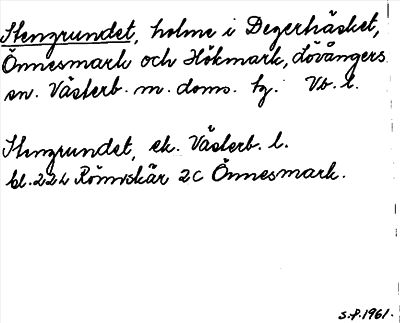 Stengrundet, holme i Degerhäsket,
Önnesmark och Hökmark, Lövångers
sn. Västerb. m. doms. tg. Vb. l.
Stengrundet, ek. Västerb. l.
bl. 22L Rönnskär 2C Önnesmark.
S.P.1961.